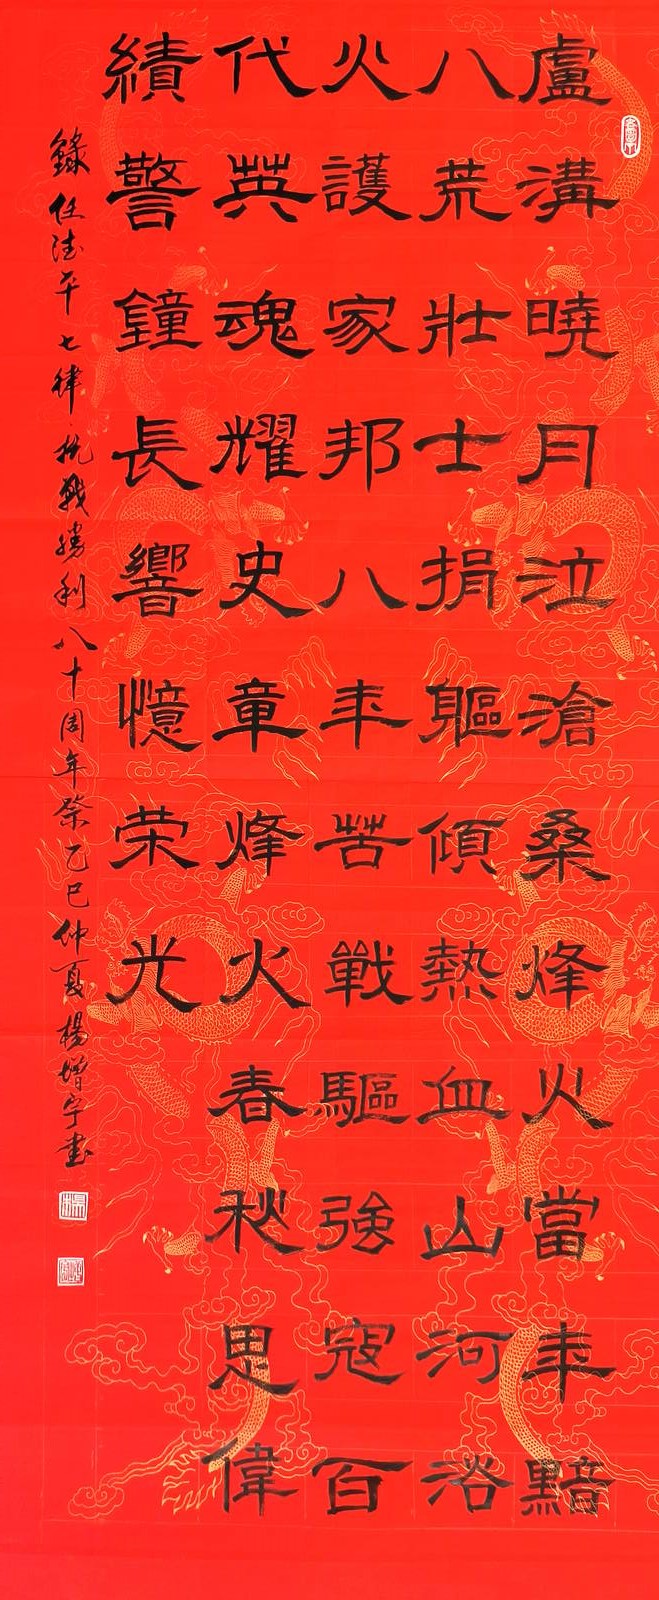 盧溝曉月泣滄桑烽火當年黯
八荒壯士捐軀傾熱血山河浴
火護家邦八年苦戰驅強寇百
代英魂耀史章烽火春秋思偉
績警鐘長響憶荣光
錄任法平七律抗戰勝利八十周年祭乙巳仲夏楊增宇書